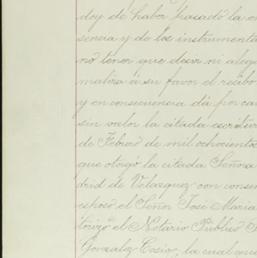 doy de haber pasado la en
sencia y de los instrument
no tener que decir ni aleg
maliza á su favor el recibo
y en consecuencia dá por can
sin valor la citada escritur
de Febrero de mil ochocient
que otorgó la citada Señora
drid de Velazquez con consen
el Señor José Maria
torizó el Notario Público
Gonzalez Cosio, la cual que